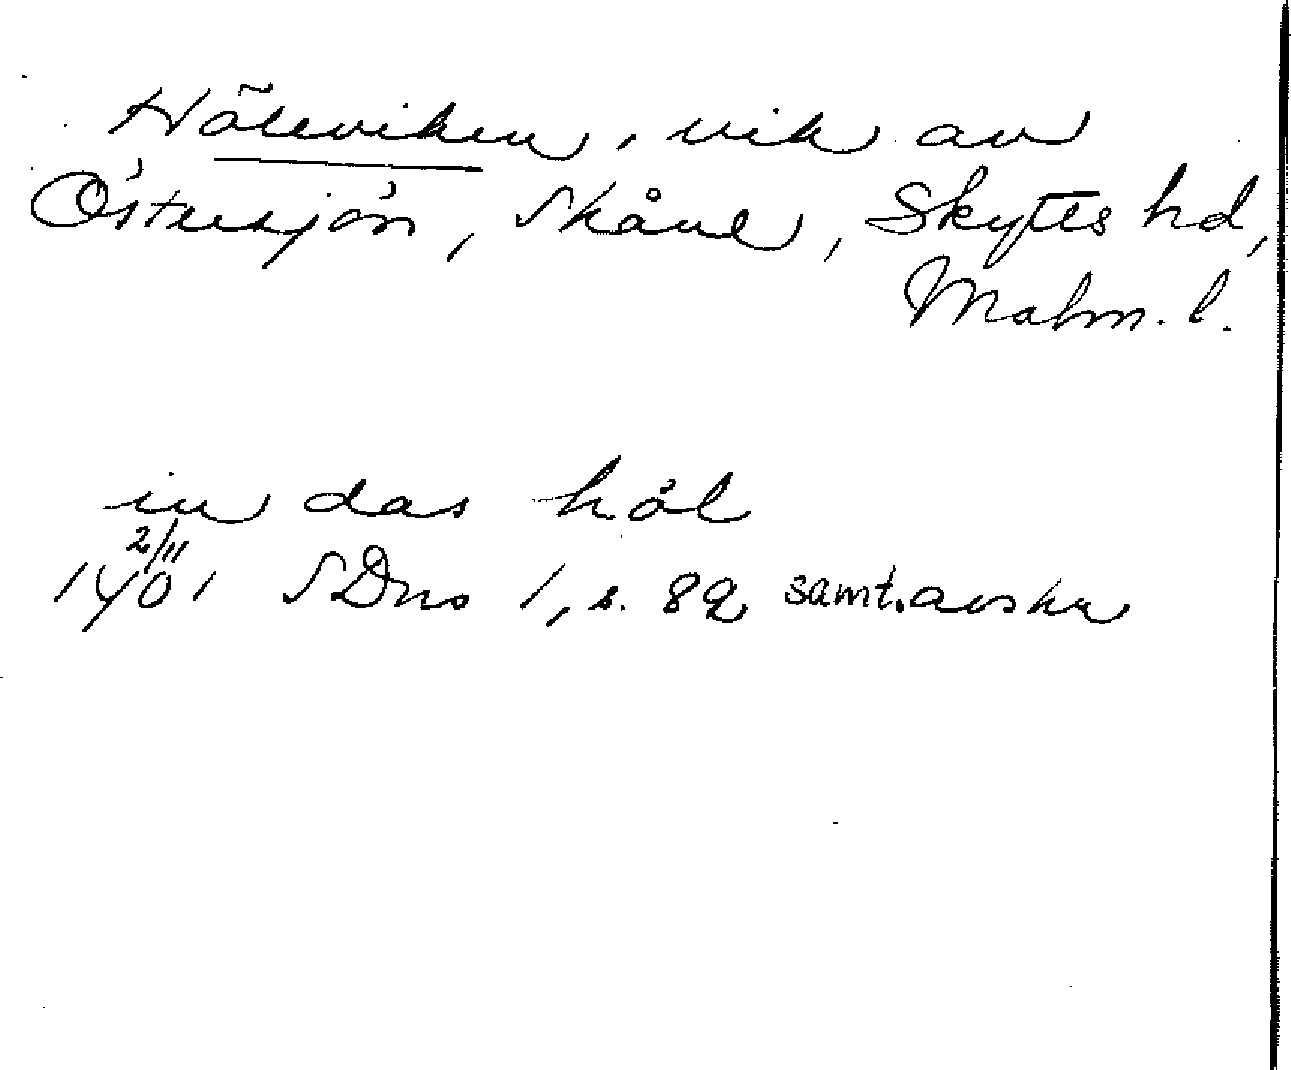 Höleviken, vik av
Östersjön, Skåne, Skytts hd,
Malm. l.
in das hól
2/11
1401 SDns 1, s. 82 samt. avskr